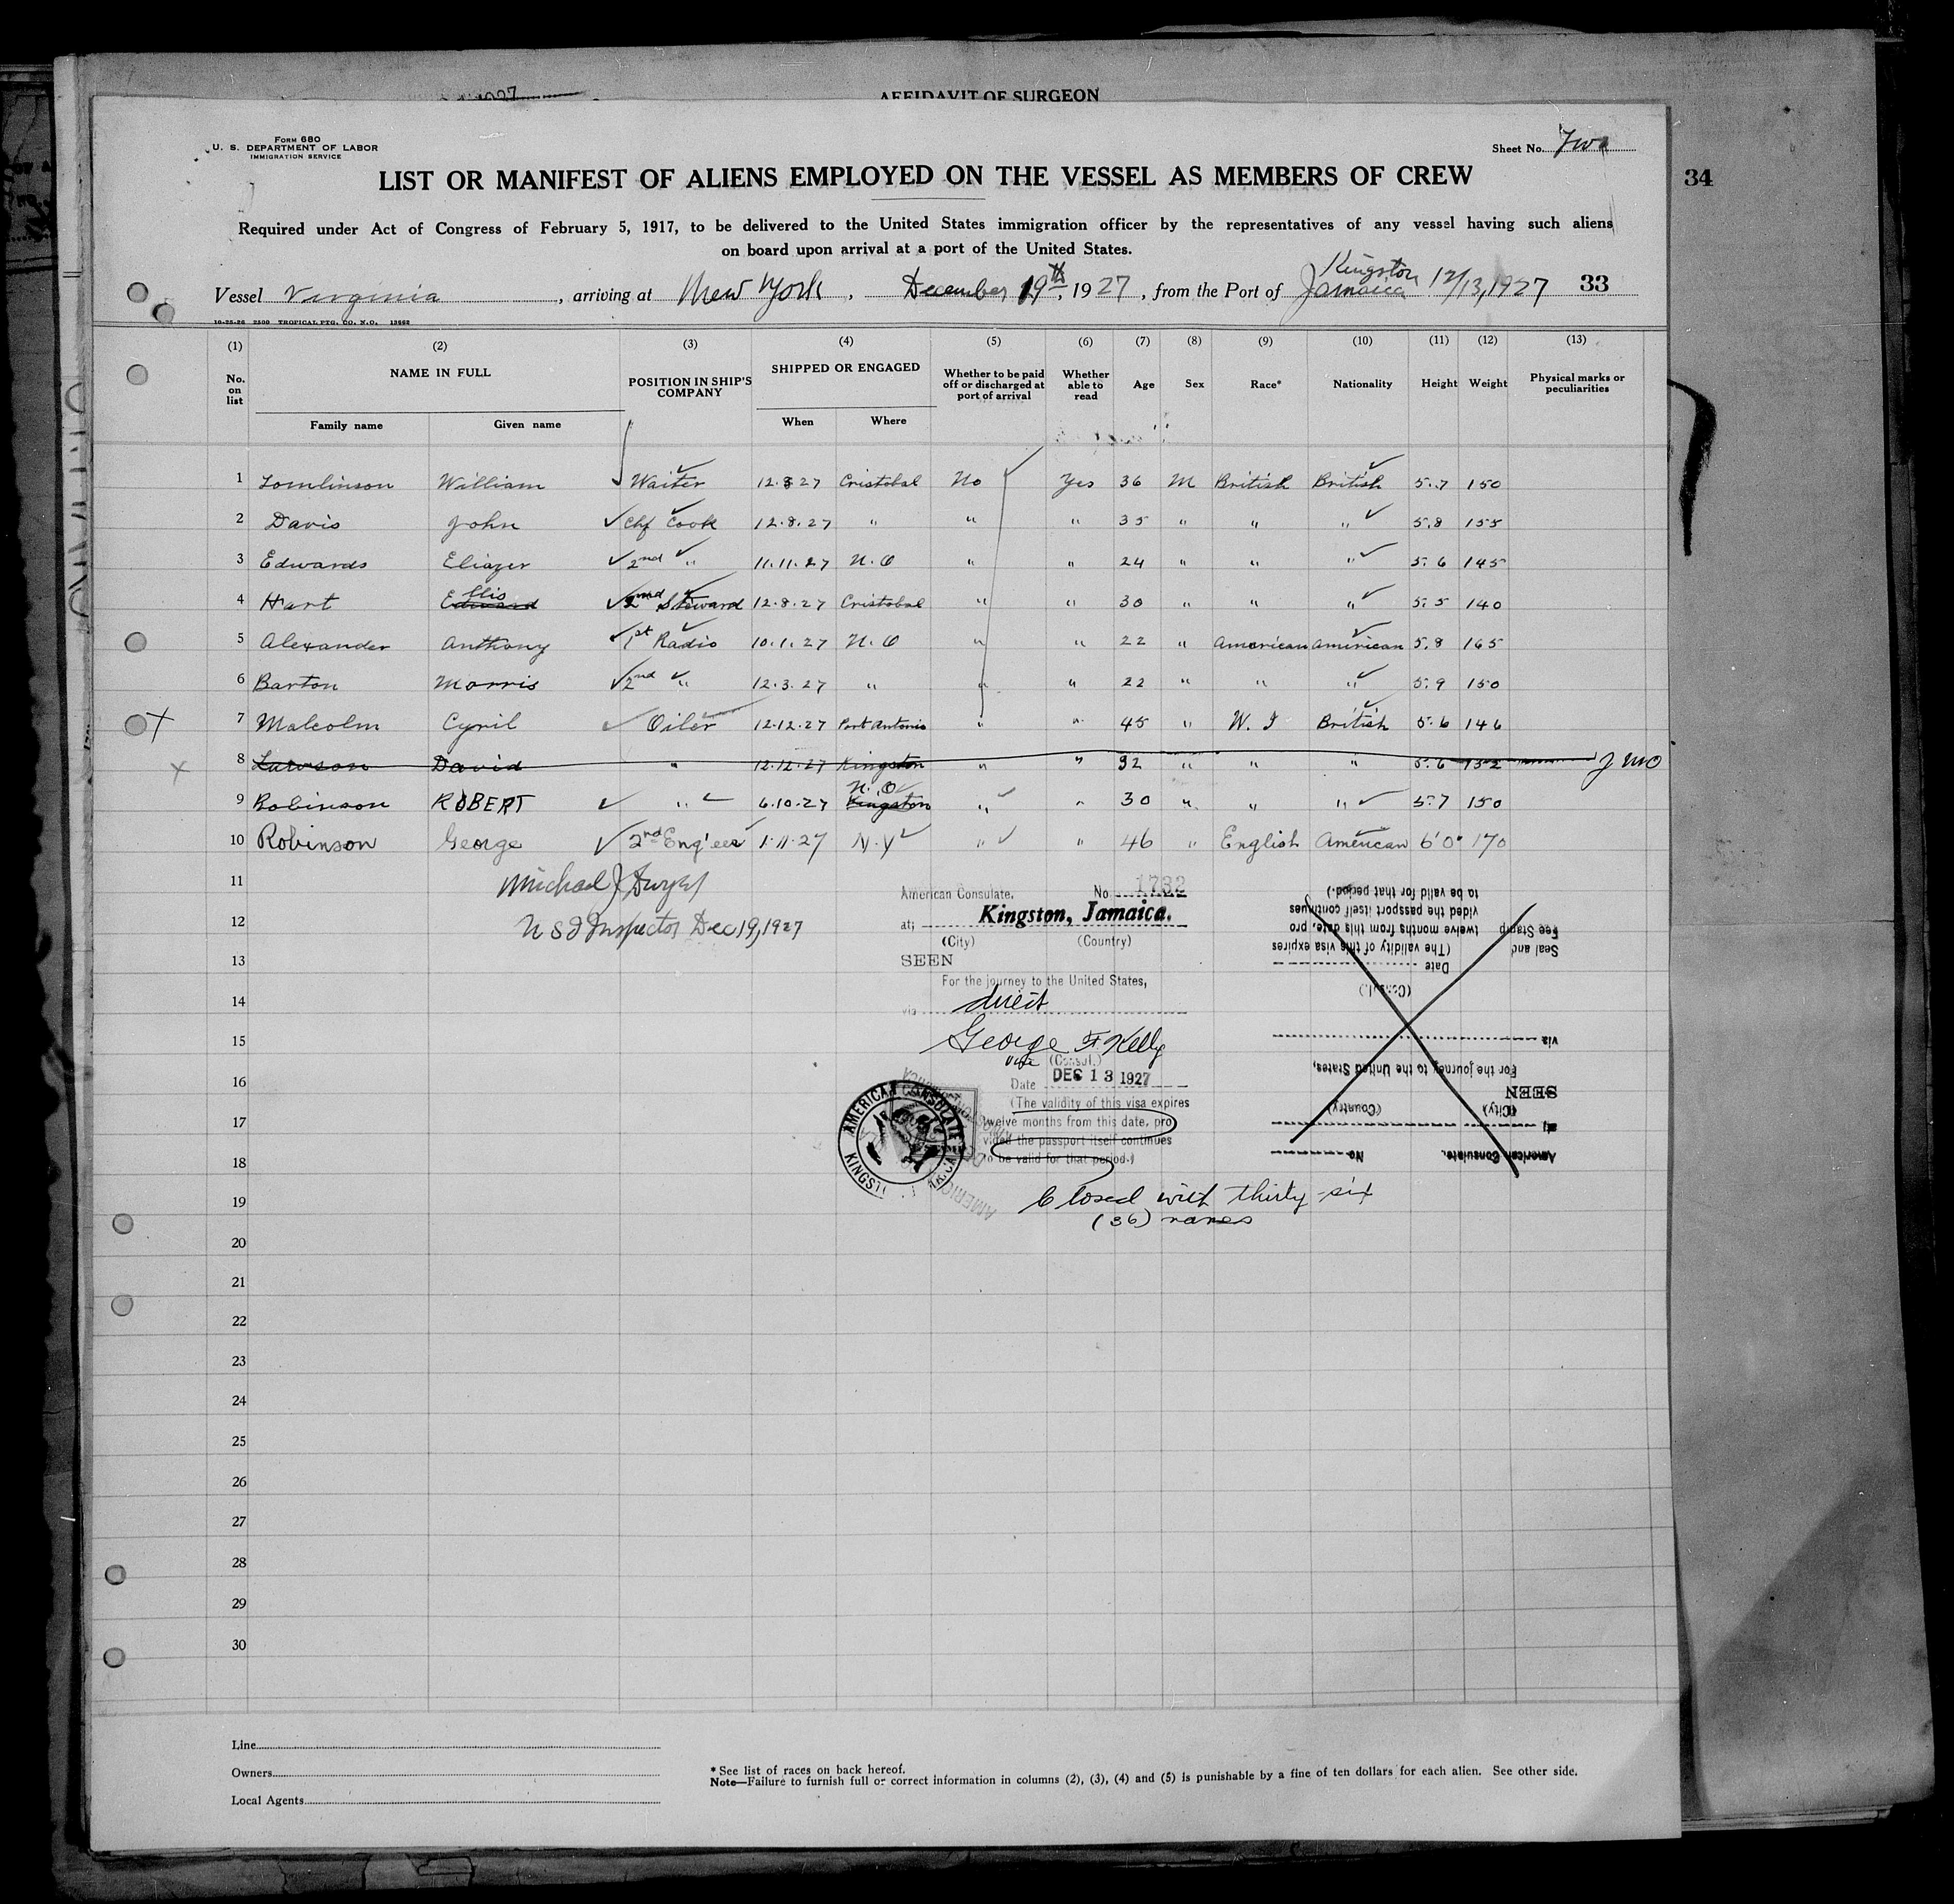 1927
AFFIDAVIT OF SURGEON
Form 680
U. S. DEPARTMENT OF LABOR
IMMIGRATION SERVICE
Sheet No. Two
LIST OR MANIFEST OF ALIENS EMPLOYED ON THE VESSEL AS MEMBERS OF CREW
34
Required under Act of Congress of February 5, 1917, to be delivered to the United States immigration officer by the representatives of any vessel having such aliens
on board upon arrival at a port of the United States.
Vessel Virginia, arriving at New York, December 19th, 1927, from the Port of Kingston Jamaica 12/13, 1927 33
10-25-26 2500 TROPICAL PTG. CO. N.O. 13662
(1) (2) (3) (4) (5) (6) (7) (8) (9) (10) (11) (12) (13)
No. on list NAME IN FULL POSITION IN SHIP'S COMPANY SHIPPED OR ENGAGED Whether to be paid off or discharged at port of arrival Whether able to read Age Sex Race* Nationality Height Weight Physical marks or peculiarities
Family name Given name When Where
1 Tomlinson William Waiter 12.8 27 Cristobal No Yes 36 M British British 5.7 150
2 Davis John Chf Cook 12.8.27 " " " 35 " " " 5.8 155
3 Edwards Eliazer 2nd " 11.11.27 N.O " " 24 " " " 5.6 145
4 Hart Edward Ellis 2nd Steward 12.8.27 Cristobal " " 30 " " " 5.5 140
5 Alexander Anthony 1st Radio 10.1.27 N.O " " 22 " American American 5.8 165
6 Barton Morris 2nd " 12.3.27 " " " 22 " " " 5.9 150
7 Malcolm Cyril Oiler 12.12.27 Port Antonio " " 45 " W. I British 5.6 146
8 Lawson David " 12.12.27 Kingston " " 32 " " " 5.6 132 J MO
9 Robinson ROBERT " 6.10.27 Kingston N.O " " 30 " " " 5.7 150
10 Robinson George 2nd Eng'eer 1.11.27 N.Y " " 46 " English American 6'0" 170
11 Michael J Dwyer
12 U S I Inspector Dec 19, 1927
13
14
15
16
17
18
19
20
21
22
23
24
25
26
27
28
29
30
American Consulate, No 1732
at; Kingston, Jamaica.
(City) (Country)
SEEN
For the journey to the United States,
via direct
George F Kelly
Vice (Consul.)
Date DEC 13 1927
(The validity of this visa expires
twelve months from this date, pro
vided the passport itself continues
to be valid for that period.)
AMERICAN CONSULATE
KINGSTON
Closed with thirty-six
(36) names
American Consulate, No
at;
(City) (Country)
SEEN
For the journey to the United States,
via
(Consul.)
Date
(The validity of this visa expires
twelve months from this date, pro
vided the passport itself continues
to be valid for that period.)
Seal and
Fee Stamp
Line
Owners
Local Agents
* See list of races on back hereof.
Note—Failure to furnish full or correct information in columns (2), (3), (4) and (5) is punishable by a fine of ten dollars for each alien. See other side.